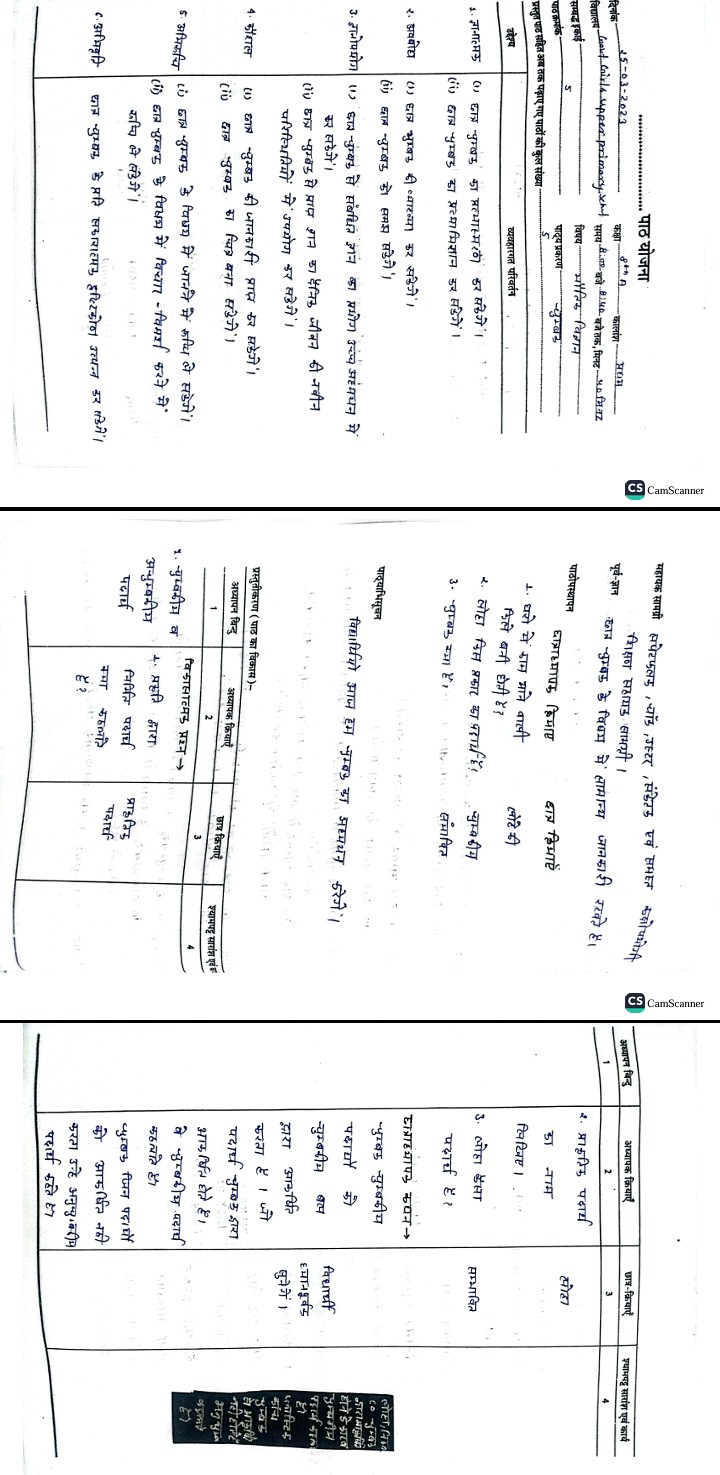 पाठ योजना
दिनांक 25-03-2023 कक्षा 8th A कालांश प्रथम
विद्यालय Govt Girls upper primary schl समय 8:00 बजे 8:40 बजे तक, मिनट 40 मिनट
सम्बद्ध इकाई विषय भौतिक विज्ञान
पाठ क्रमांक 5 पाठ्य प्रकरण चुम्बक
प्रस्तुत पाठ सहित अब तक पढ़ाए गए पाठों की कुल संख्या 5
उद्देश्य व्यवहारगत परिवर्तन
1. ज्ञानात्मक (i) छात्र चुम्बक का प्रत्यास्मरण कर सकेंगे।
(ii) छात्र चुम्बक का प्रत्याभिज्ञान कर सकेंगे।
2. अवबोध (i) छात्र चुम्बक की व्याख्या कर सकेंगे।
(ii) छात्र चुम्बक को समझ सकेंगे।
3. ज्ञानोपयोग (i) छात्र चुम्बक से संबंधित ज्ञान का प्रयोग उच्च अध्ययन में
कर सकेंगे।
(ii) छात्र चुम्बक से प्राप्त ज्ञान का दैनिक जीवन की नवीन
परिस्थितियों में उपयोग कर सकेंगे।
4. कौशल (i) छात्र चुम्बक की जानकारी प्राप्त कर सकेंगे।
(ii) छात्र चुम्बक का चित्र बना सकेंगे।
5. अभिरूचि (i) छात्र चुम्बक के विषय में जानने में रूचि ले सकेंगे।
(ii) छात्र चुम्बक के विषय में विचार-विमर्श करने में
रूचि ले सकेंगे।
6. अभिवृत्ति छात्र चुम्बक के प्रति सकारात्मक दृष्टिकोण उत्पन्न कर सकेंगे।
CS CamScanner
सहायक सामग्री लपेटफलक, चॉक, डस्टर, संकेतक एवं समस्त कक्षोपयोगी
शिक्षण सहायक सामग्री।
पूर्व-ज्ञान छात्र चुम्बक के विषय में सामान्य जानकारी रखते हैं।
पाठोपस्थापन छात्राध्यापक क्रियाएं छात्र क्रियाएं
1. घरो में काम आने वाली लोहे की
किसे बनी होती है?
2. लोहा किस प्रकार का पदार्थ है। चुम्बकीय
3. चुम्बक क्या है। संभावित
पाठ्याभिसूचन
विद्यार्थियो आज हम चुम्बक का अध्ययन करेंगे।
प्रस्तुतीकरण (पाठ का विकास)-
अध्यापन बिन्दु अध्यापक क्रियाएँ छात्र क्रियाएँ श्यामपट्ट सारांश एवं
1 2 3 4
विकासात्मक प्रश्न →
1. चुम्बकीय व 1. प्रकृति द्वारा प्राकृतिक
अचुम्बकीय निर्मित पदार्थ पदार्थ
पदार्थ क्या कहलाते
है?
CS CamScanner
अध्यापन बिन्दु अध्यापक क्रियाएँ छात्र-क्रियाएँ श्यामपट्ट सारांश एवं कार्य
1 2 3 4
2. प्राकृतिक पदार्थ लोहा
का नाम
लिखिए।
3. लोहा कैसा सम्भावित
पदार्थ है?
छात्राध्यापक कथन →
चुम्बक चुम्बकीय
पदार्थो को विद्यार्थी
चुम्बकीय बल ध्यानपूर्वक
द्वारा आकर्षित सुनेंगे।
करता है। जो
पदार्थ चुम्बक द्वारा
आकर्षित होते है।
वे चुम्बकीय पदार्थ
कहलाते है।
चुम्बक जिन पदार्थो
को आकर्षित नही
करता उन्हे अचुम्बकीय
पदार्थ कहते है।